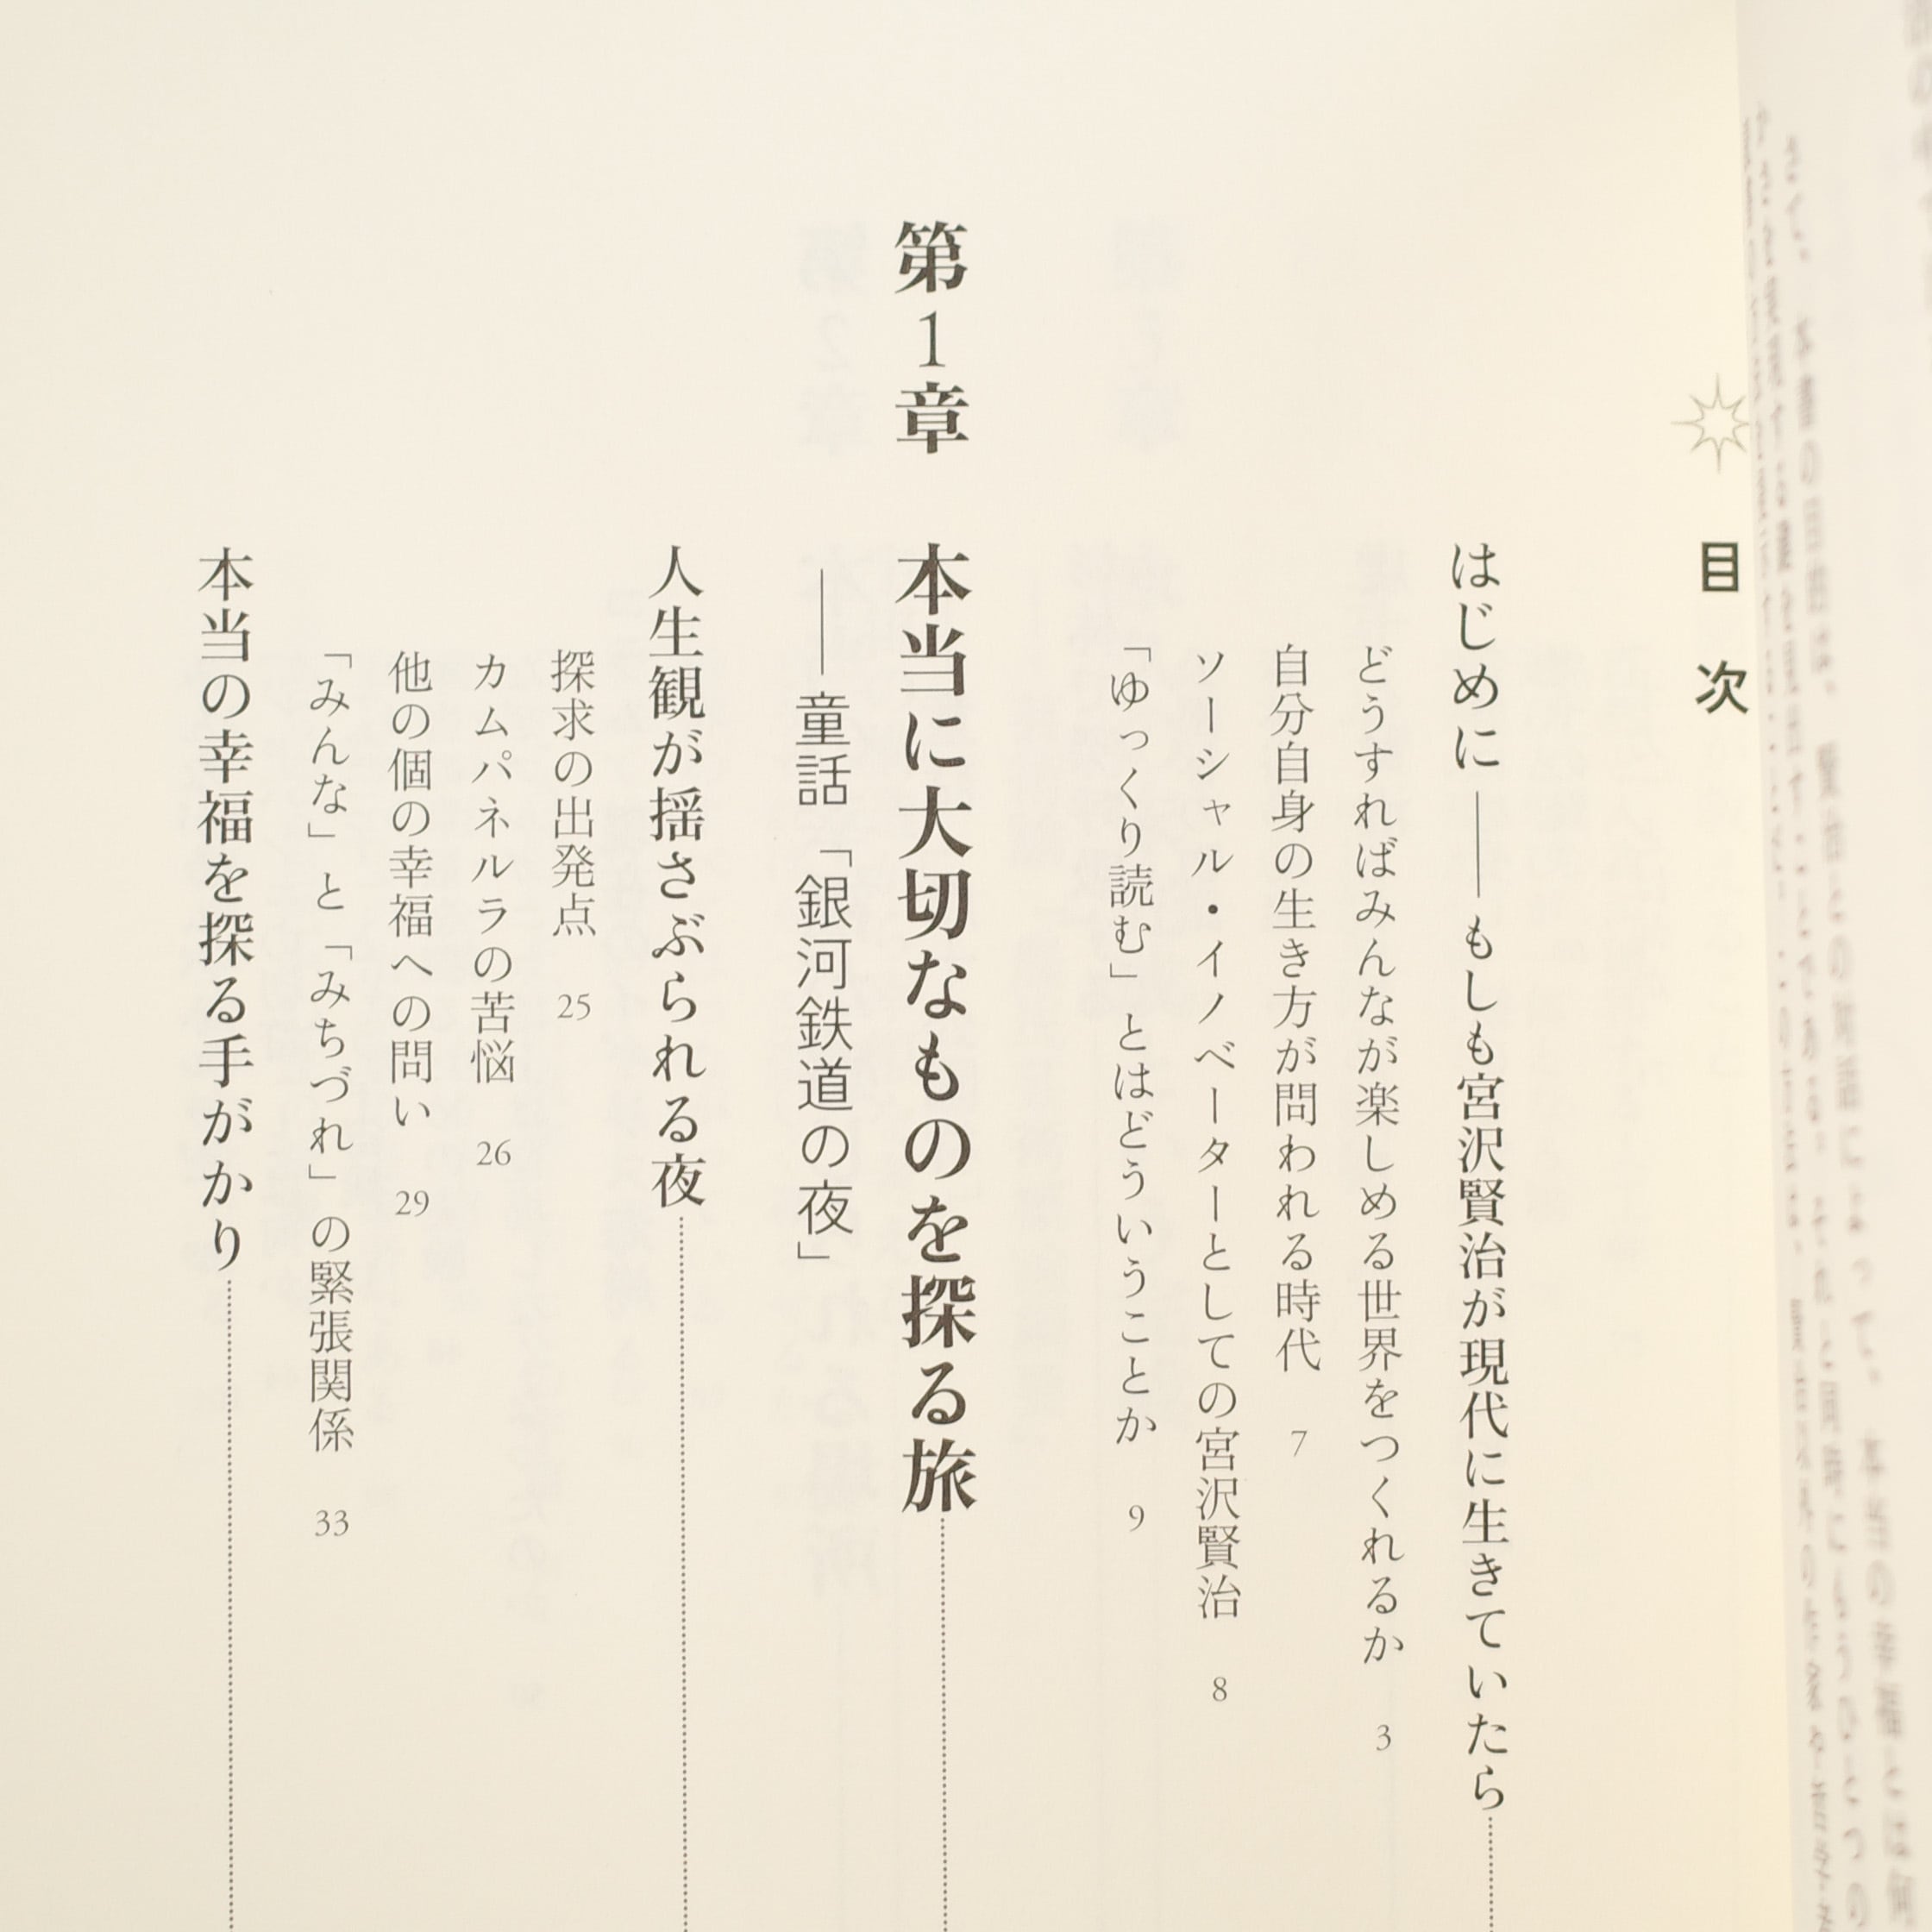 目次
はじめに――もしも宮沢賢治が現代に生きていたら
どうすればみんなが楽しめる世界をつくれるか 3
自分自身の生き方が問われる時代 7
ソーシャル・イノベーターとしての宮沢賢治 8
「ゆっくり読む」とはどういうことか 9
第1章 本当に大切なものを探る旅
――童話「銀河鉄道の夜」
人生観が揺さぶられる夜
探求の出発点 25
カムパネルラの苦悩 26
他の個の幸福への問い 29
「みんな」と「みちづれ」の緊張関係 33
本当の幸福を探る手がかり